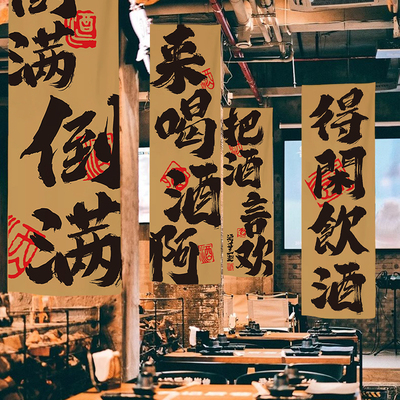 满倒满
来喝酒啊
把酒言欢
得閑飲酒